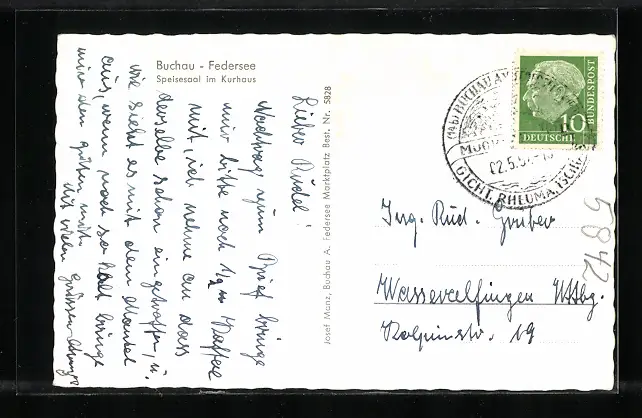 Buchau - Federsee
Speisesaal im Kurhaus
Lieber Rudel!
Nachtrag zum Brief bringe
mir bitte noch 1/2 Kaffee
mit, ich nehme an dass
derselbe schon eingetroffen, u.
wie sieht es mit dem Mantel
aus, wenn noch so kalt bringe
mir den guten mit.
Mit vielen Grüssen
Josef Manz, Buchau A. Federsee Marktplatz Best. Nr. 5828
(14b) BUCHAU A
MOOR
02.5.57
GICHT, RHEUMA, ISCHI
10
DEUTSCHE
BUNDESPOST
Ing. Rud. Gruber
Wasseralfingen Wttbg.
Kolpingstr. 19
5842